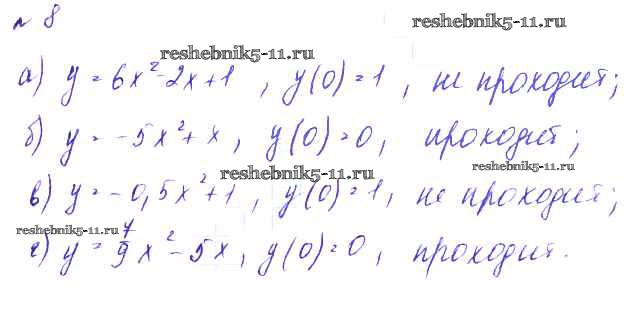 № 8
reshebnik5-11.ru
reshebnik5-11.ru
а) y = 6x²-2x+1, y(0)=1, не проходит;
б) y = -5x²+x, y(0)=0, проходит;
reshebnik5-11.ru
reshebnik5-11.ru
в) y = -0,5x²+1, y(0)=1, не проходит;
reshebnik5-11.ru
г) y = 7/9x²-5x, y(0)=0, проходит.